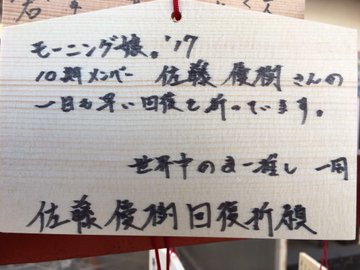 モーニング娘。'17
10期メンバー 佐藤優樹さんの
一日も早い回復を祈っています。
世界中のまー推し 一同
佐藤優樹回復祈願